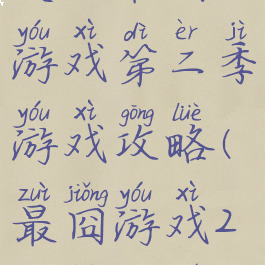 yóu xì dì èr jì
游戏第二季
yóu xì gōng lüè
游戏攻略(
zuì jiǒng yóu xì
最囧游戏2